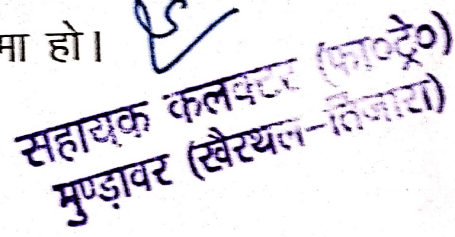 मा हो।
सहायक कलक्टर (फा०ट्रे०)
मुण्डावर (खैरथल-तिजारा)